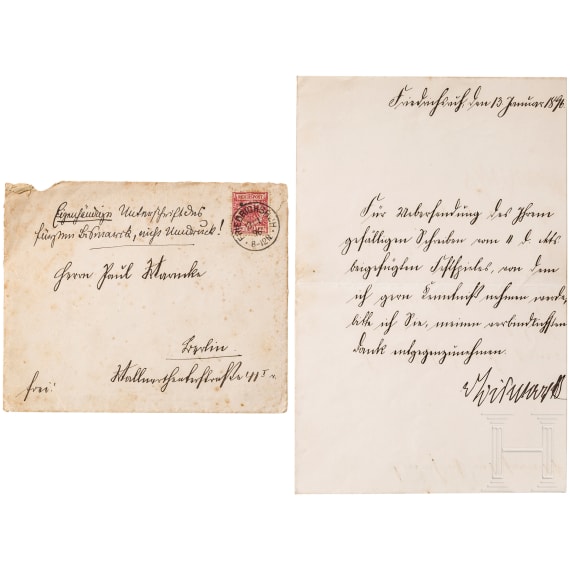 Eigenhändige Unterschrift des
Fürsten Bismarck, nicht Umdruck!
Herrn Paul Warncke
Berlin
frei!
REICHSPOST
FRIEDRICHSRUH
Friedrichsruh, den 13 Januar 1896
Für Uebersendung des Ihrem
gefälligen Schreiben vom 11 d. Mts
beigefügten Festspieles, von dem
ich gern Kenntniß nehmen werde,
bitte ich Sie, meinen verbindlichsten
Dank entgegenzunehmen.
v Bismarck
H